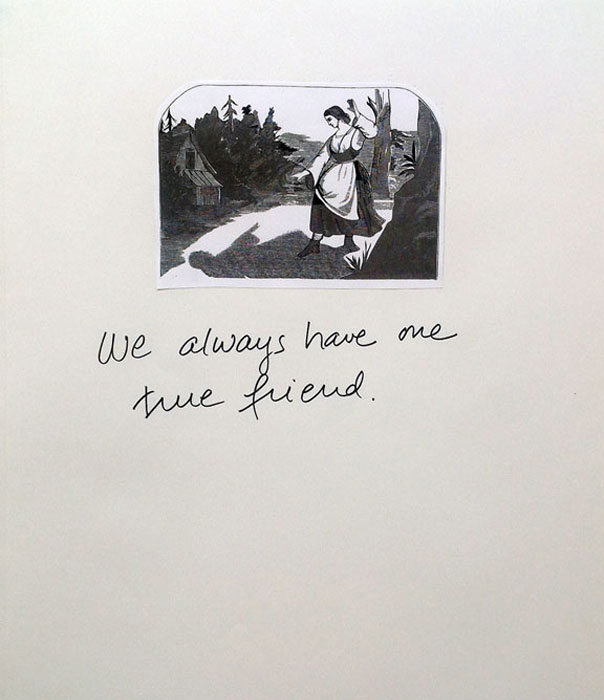 We always have one
true friend.